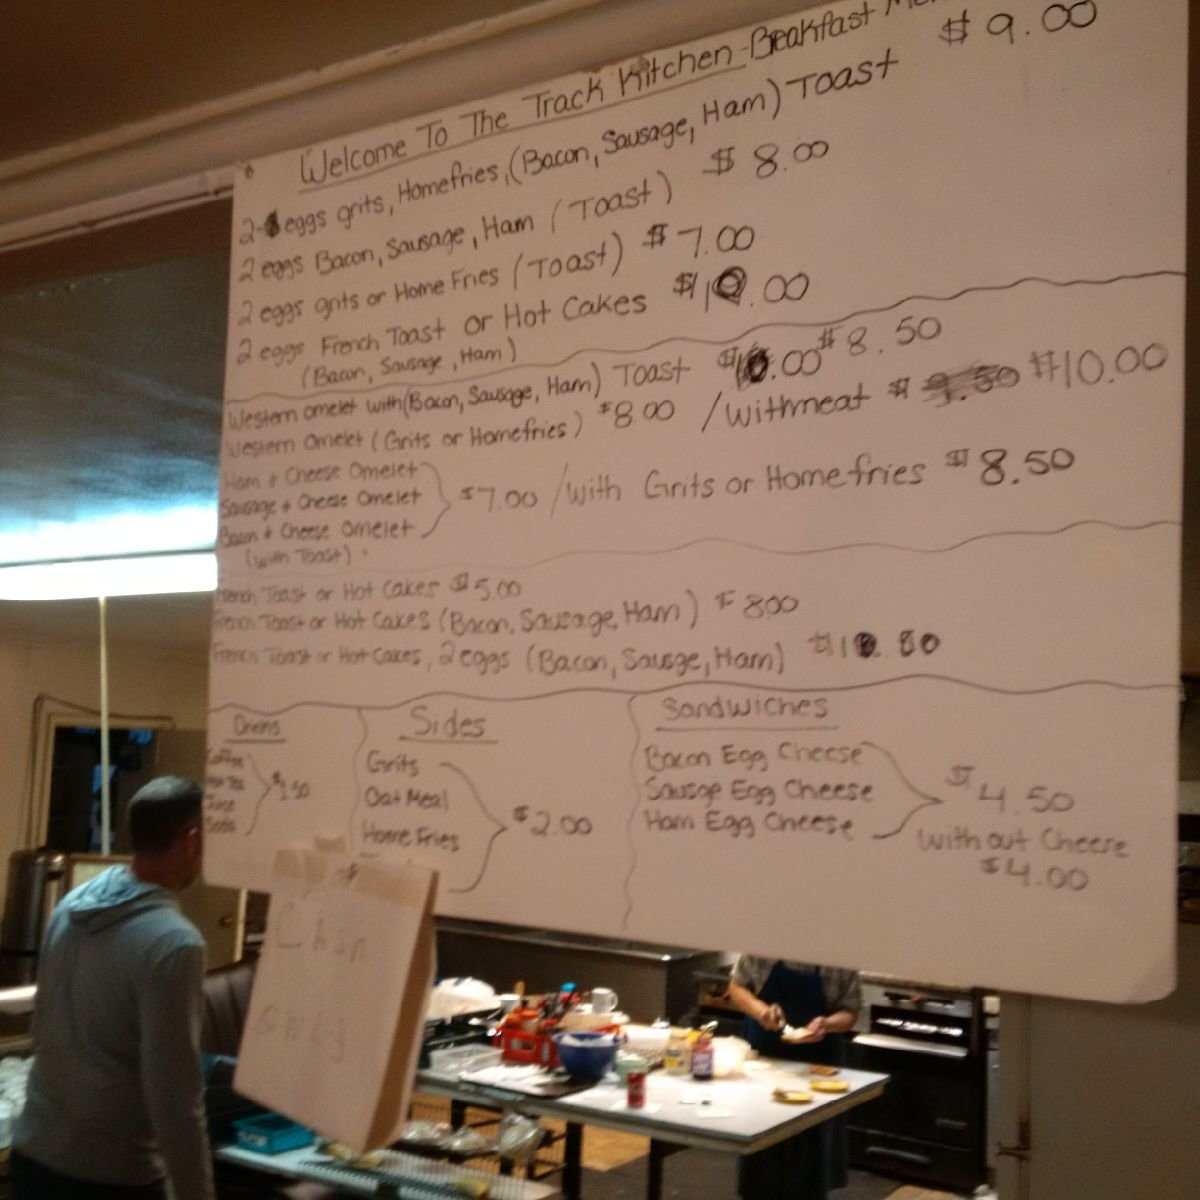 Welcome To The Track Kitchen-Breakfast
2 eggs grits, Homefries, (Bacon, Sausage, Ham) Toast $9.00
2 eggs Bacon, Sausage, Ham (Toast) $8.00
2 eggs grits or Home Fries (Toast) $7.00
2 eggs French Toast or Hot Cakes $10.00
(Bacon, Sausage, Ham)
Western omelet with (Bacon, Sausage, Ham) Toast $8.50
Western Omelet (Grits or Homefries) $8.00 / withmeat $ 9.50 $10.00
Ham + Cheese Omelet
Sausage + Cheese Omelet
Bacon + Cheese Omelet
(with Toast)
$7.00 / with Grits or Homefries $8.50
French Toast or Hot Cakes $5.00
French Toast or Hot Cakes (Bacon, Sausage, Ham) $8.00
French Toast or Hot Cakes, 2 eggs (Bacon, Sausge, Ham)
Drinks
Coffee
Hot Tea
Juice
Soda
$1.50
Sides
Grits
Oat Meal
Home Fries
$2.00
Sandwiches
Bacon Egg Cheese
Sausge Egg Cheese
Ham Egg Cheese
$4.50
without Cheese
$4.00
Cash
only